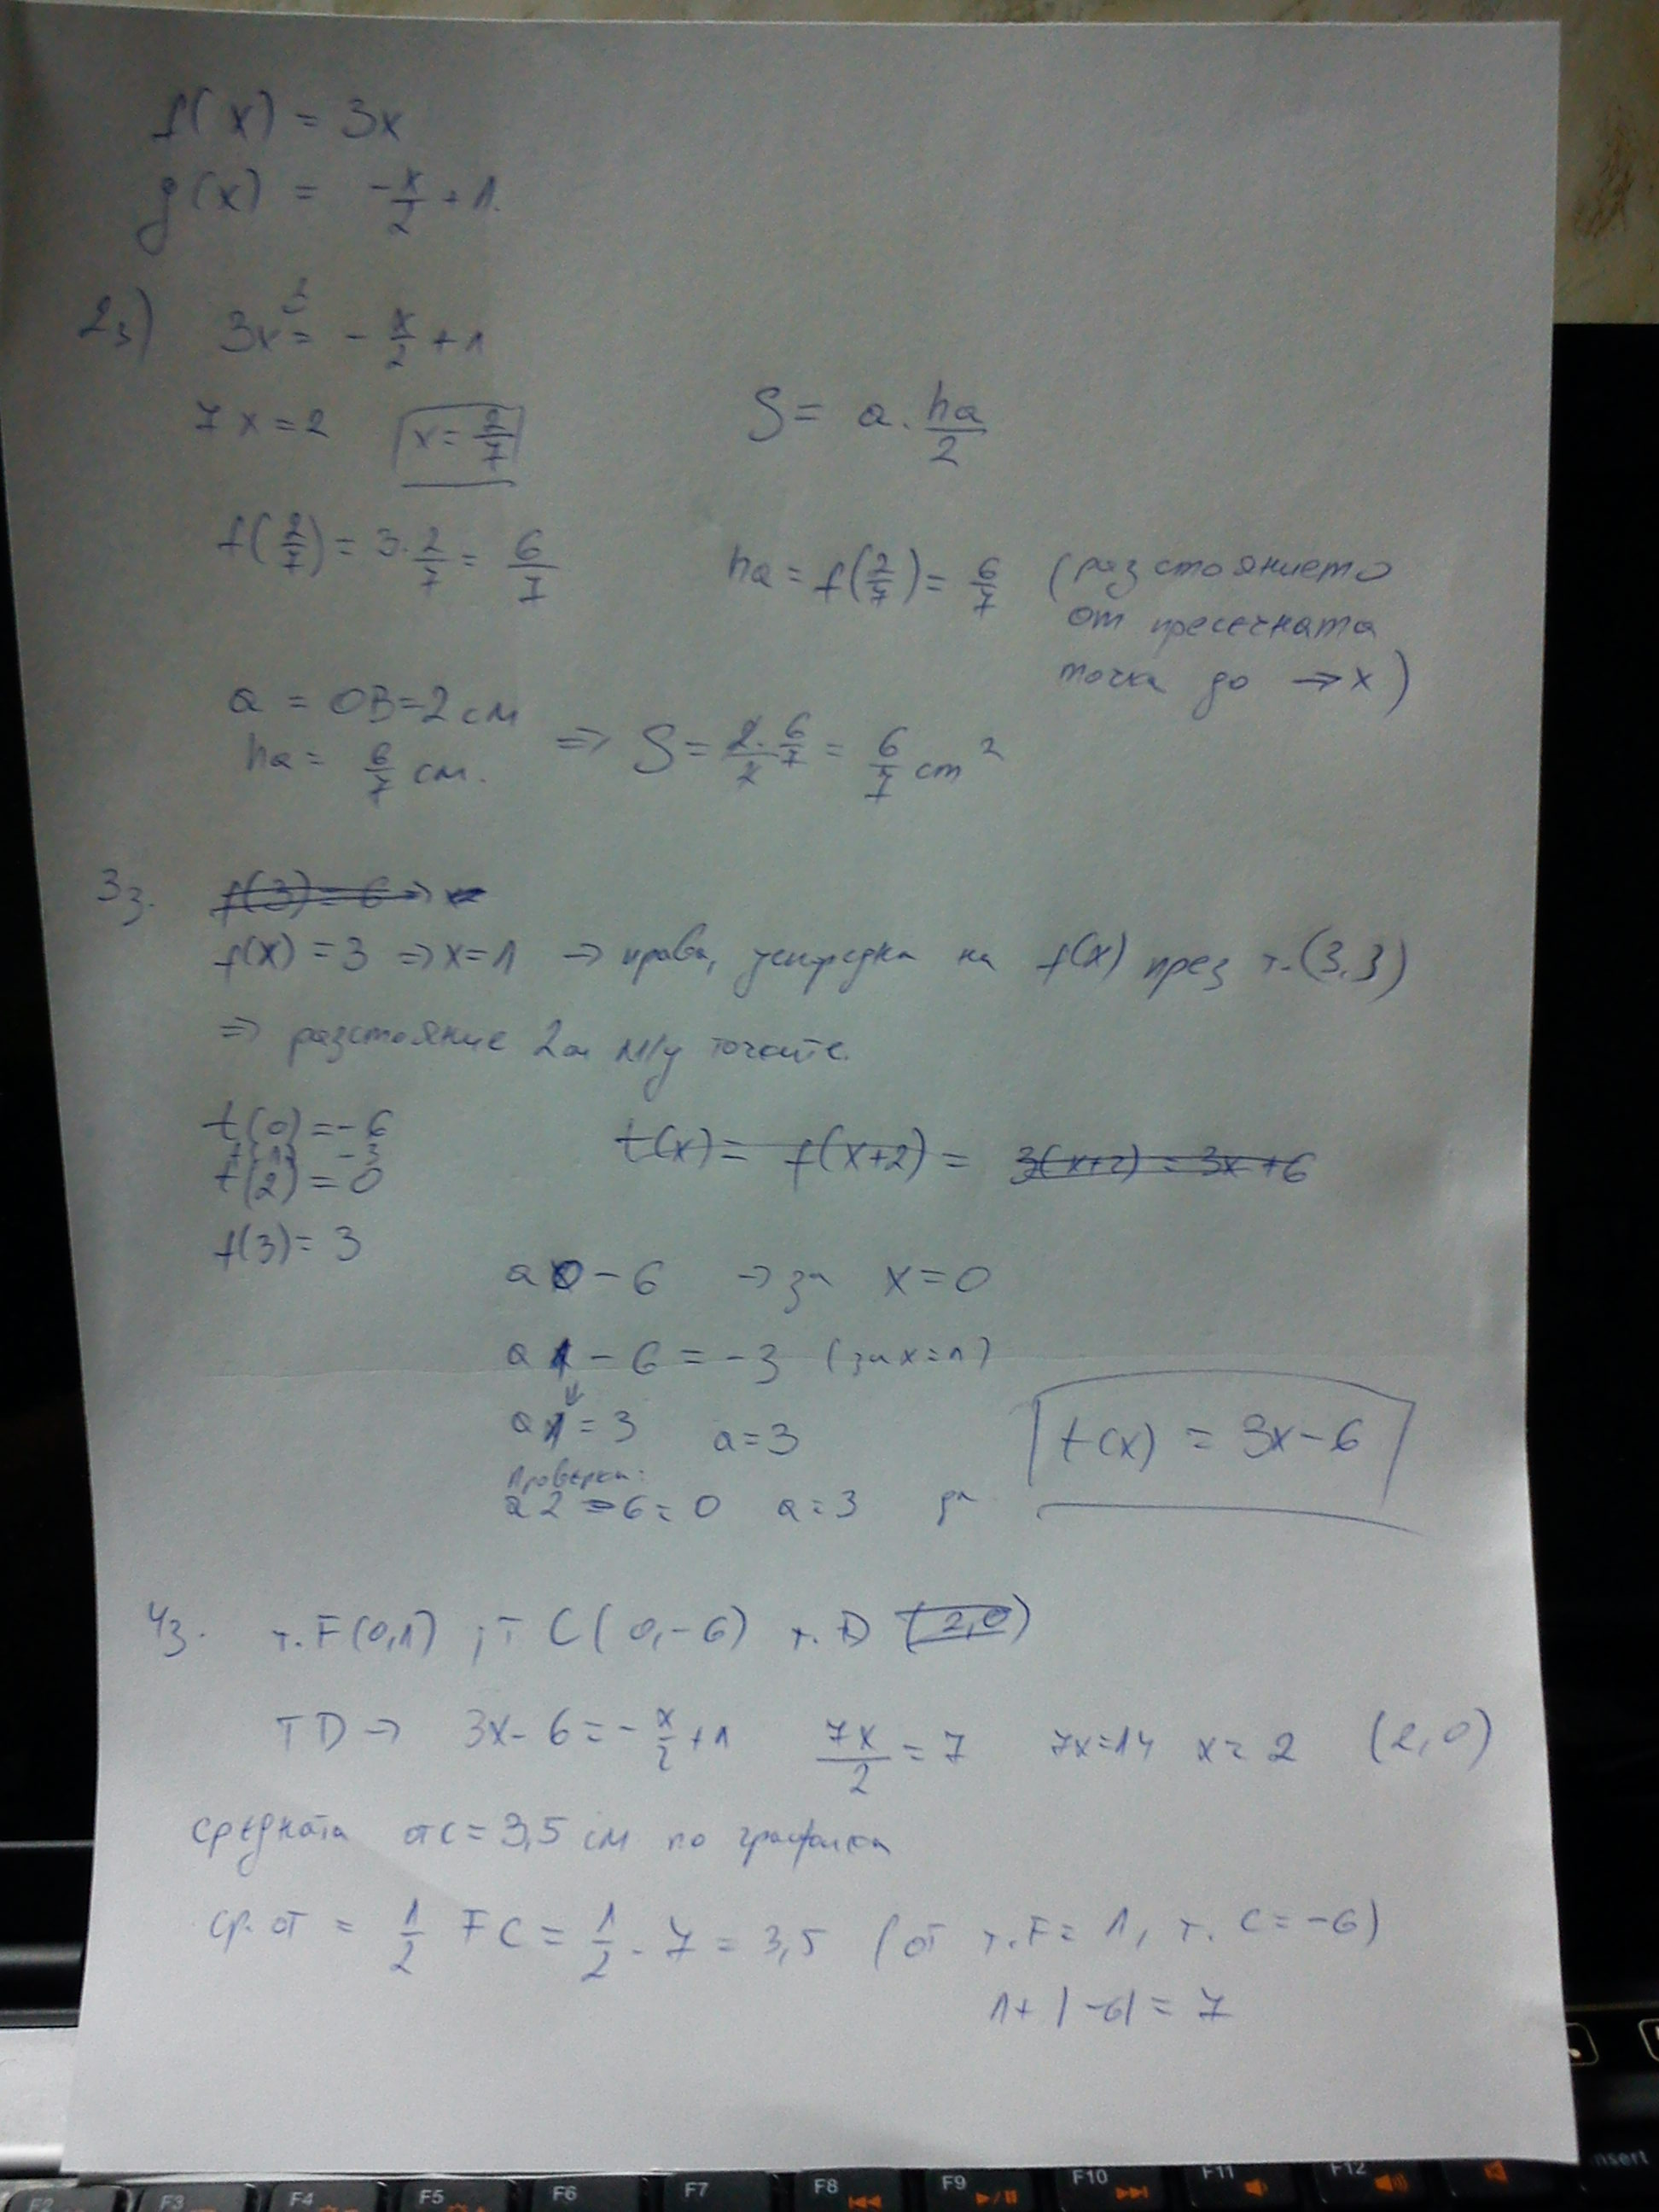 f(x) = 3x
g(x) = -x/2 + 1.
2з) 3x = -x/2 + 1
7x = 2 x = 2/7
S = a . ha/2
f(2/7) = 3 . 2/7 = 6/7
ha = f(2/7) = 6/7 (разстоянието
от пресечната
точка до → x)
a = OB = 2 см
ha = 6/7 см.
⇒ S = 2/2 . 6/7 = 6/7 cm²
3з. f(3) = 6 ⇒
f(x) = 3 ⇒ x = 1 → права, успоредна на f(x) през т. (3,3)
⇒ разстояние 2см м/у точките.
t(0) = -6
t(1) = -3
t(2) = 0
f(3) = 3
t(x) = f(x+2) = 3(x+2) = 3x + 6
a0 - 6 → за x = 0
a1 - 6 = -3 (за x = 1)
a1 = 3 a = 3
Проверка:
a2 - 6 = 0 a = 3 да
t(x) = 3x - 6
4з. т. F(0,1) ; т C(0,-6) т. D (2,0)
т D → 3x - 6 = -x/2 + 1 7x/2 = 7 7x = 14 x = 2 (2,0)
средната отс = 3,5 см по графика
ср. от = 1/2 FC = 1/2 . 7 = 3,5 (от т. F = 1, т. C = -6)
1 + |-6| = 7
F2
F3
F4
F5
F6
F7
F8
F9
F10
F11
F12
Insert